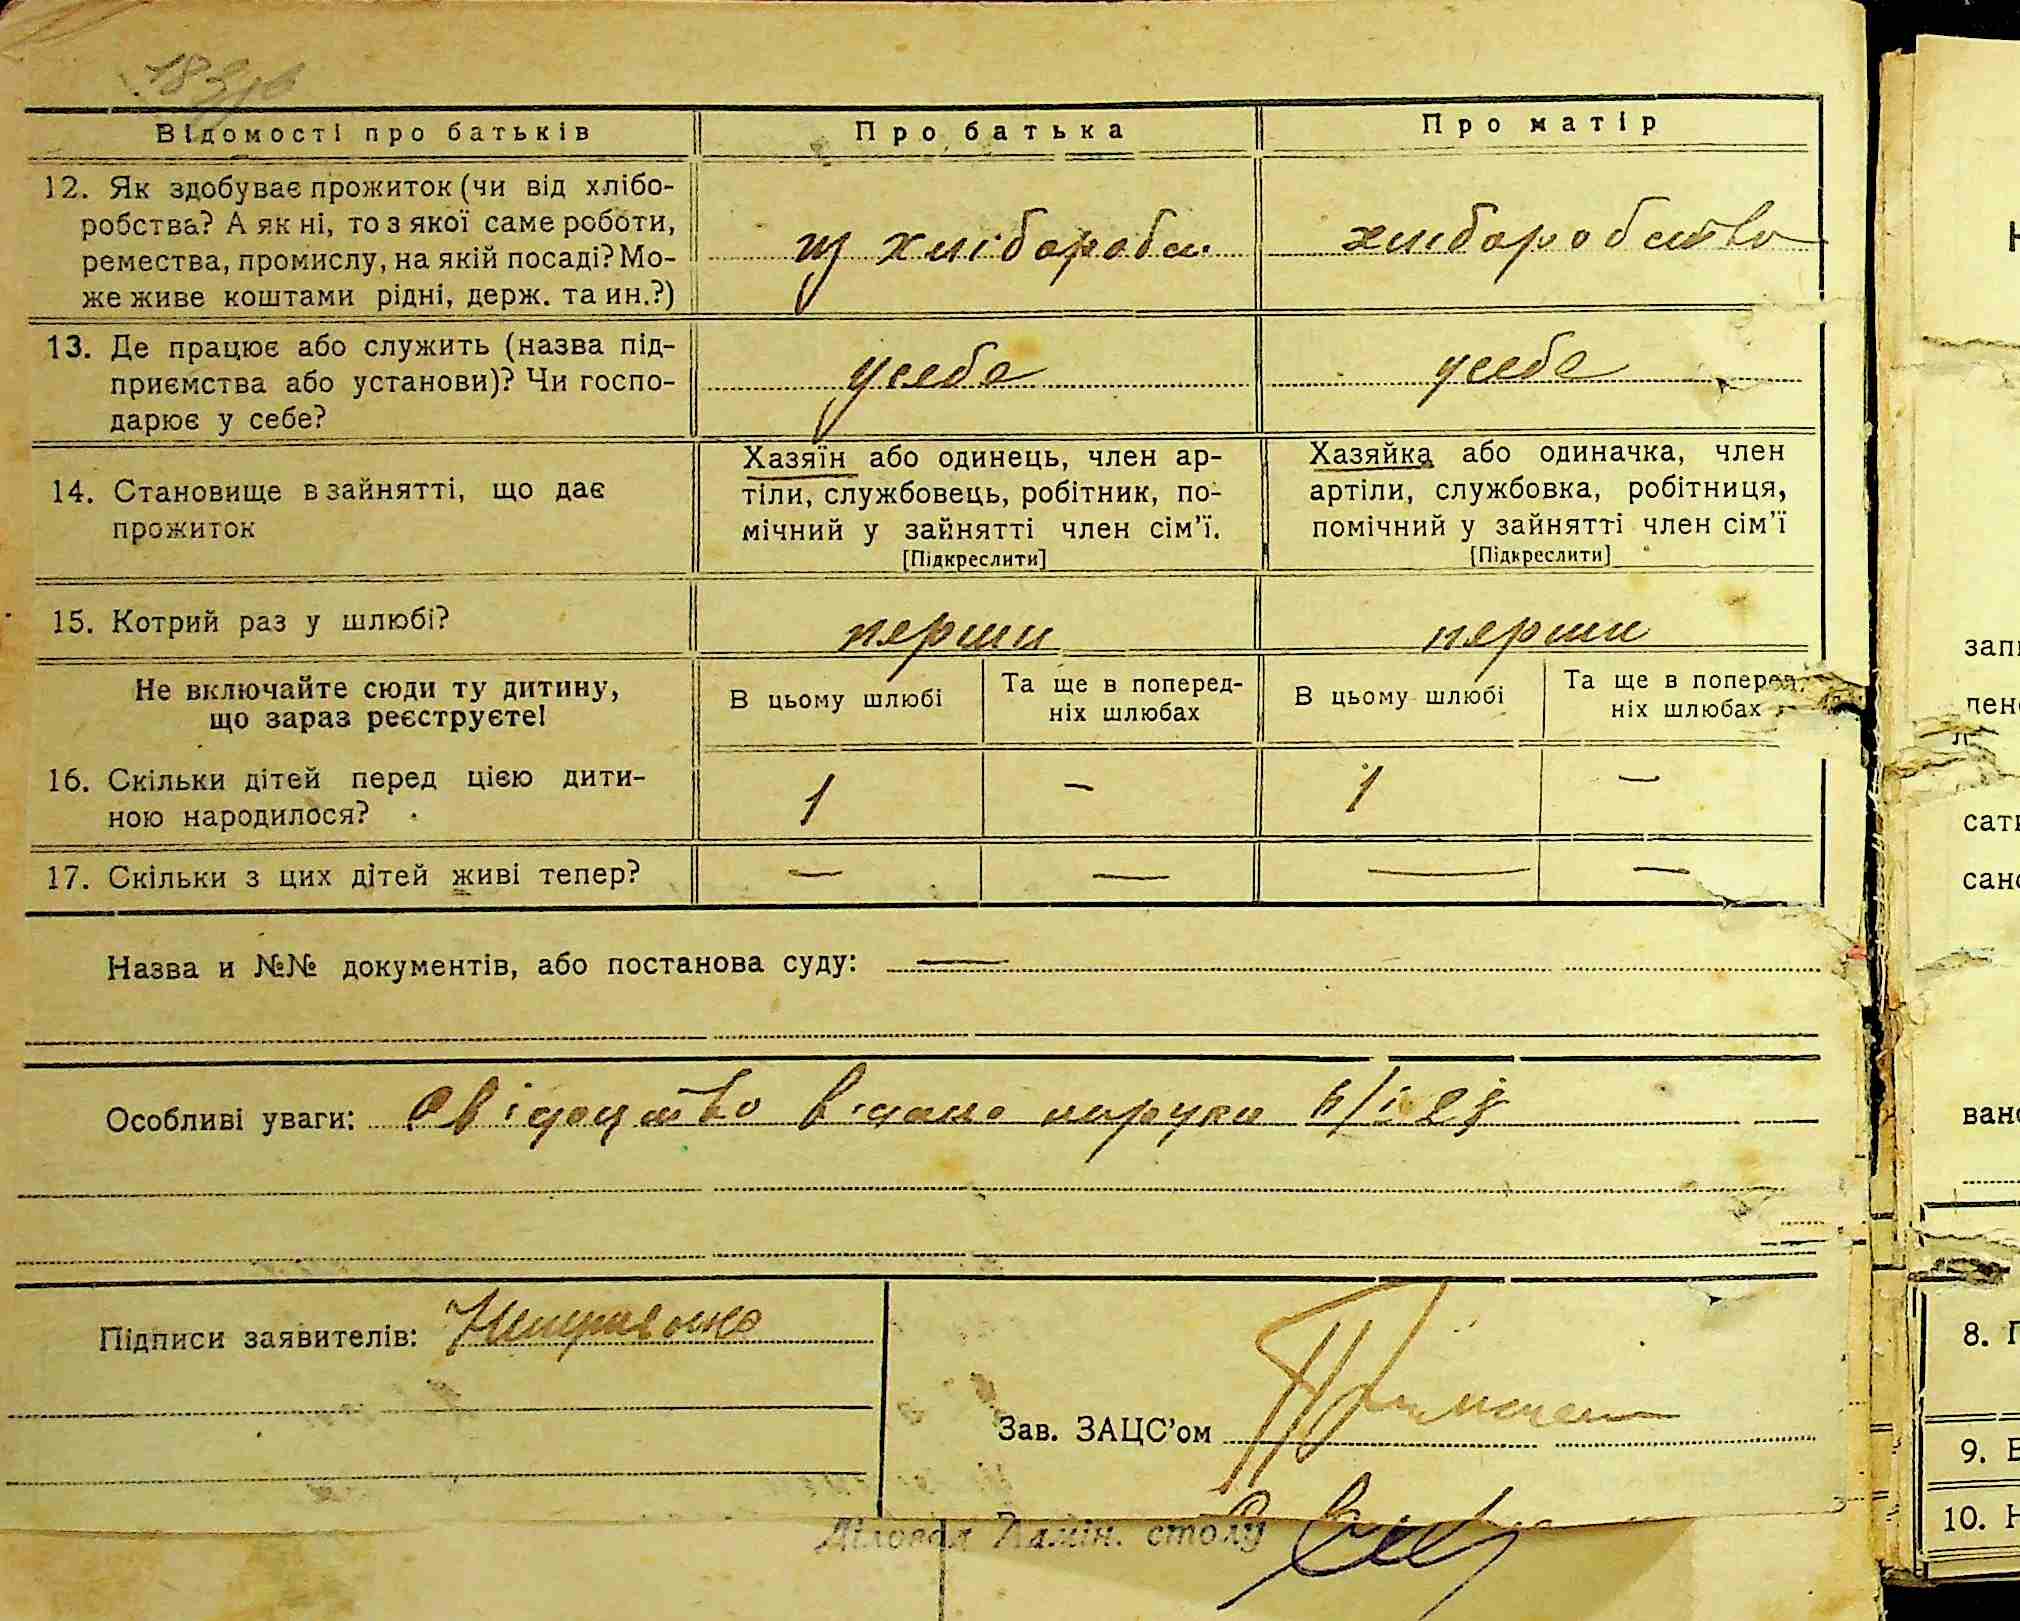 Відомості про батьків Про батька Про матір
12. Як здобуває прожиток (чи від хлібо-
робства? А як ні, то з якої саме роботи,
ремества, промислу, на якій посаді? Мо-
же живе коштами рідні, держ. та ин.?)
из хлібороби хліборобство
13. Де працює або служить (назва під-
приємства або установи)? Чи госпо-
дарює у себе?
усебе усебе
14. Становище в зайнятті, що дає
прожиток
Хазяїн або одинець, член ар-
тіли, службовець, робітник, по-
мічний у зайнятті член сім'ї.
[Підкреслити]
Хазяйка або одиначка, член
артіли, службовка, робітниця,
помічний у зайнятті член сім'ї
[Підкреслити]
15. Котрий раз у шлюбі? перши перши
Не включайте сюди ту дитину,
що зараз реєструєте!
В цьому шлюбі
Та ще в поперед-
ніх шлюбах
В цьому шлюбі
Та ще в поперед-
ніх шлюбах
16. Скільки дітей перед цією дити-
ною народилося?
1 — 1 —
17. Скільки з цих дітей живі тепер? — — — —
Назва и №№ документів, або постанова суду: —
Особливі уваги: Свідоцтво видано на руки
Підписи заявителів:
Зав. ЗАЦС'ом
Діловод Намін. столу
запи
сати
сано
вано
8. П
9. В
10. Н